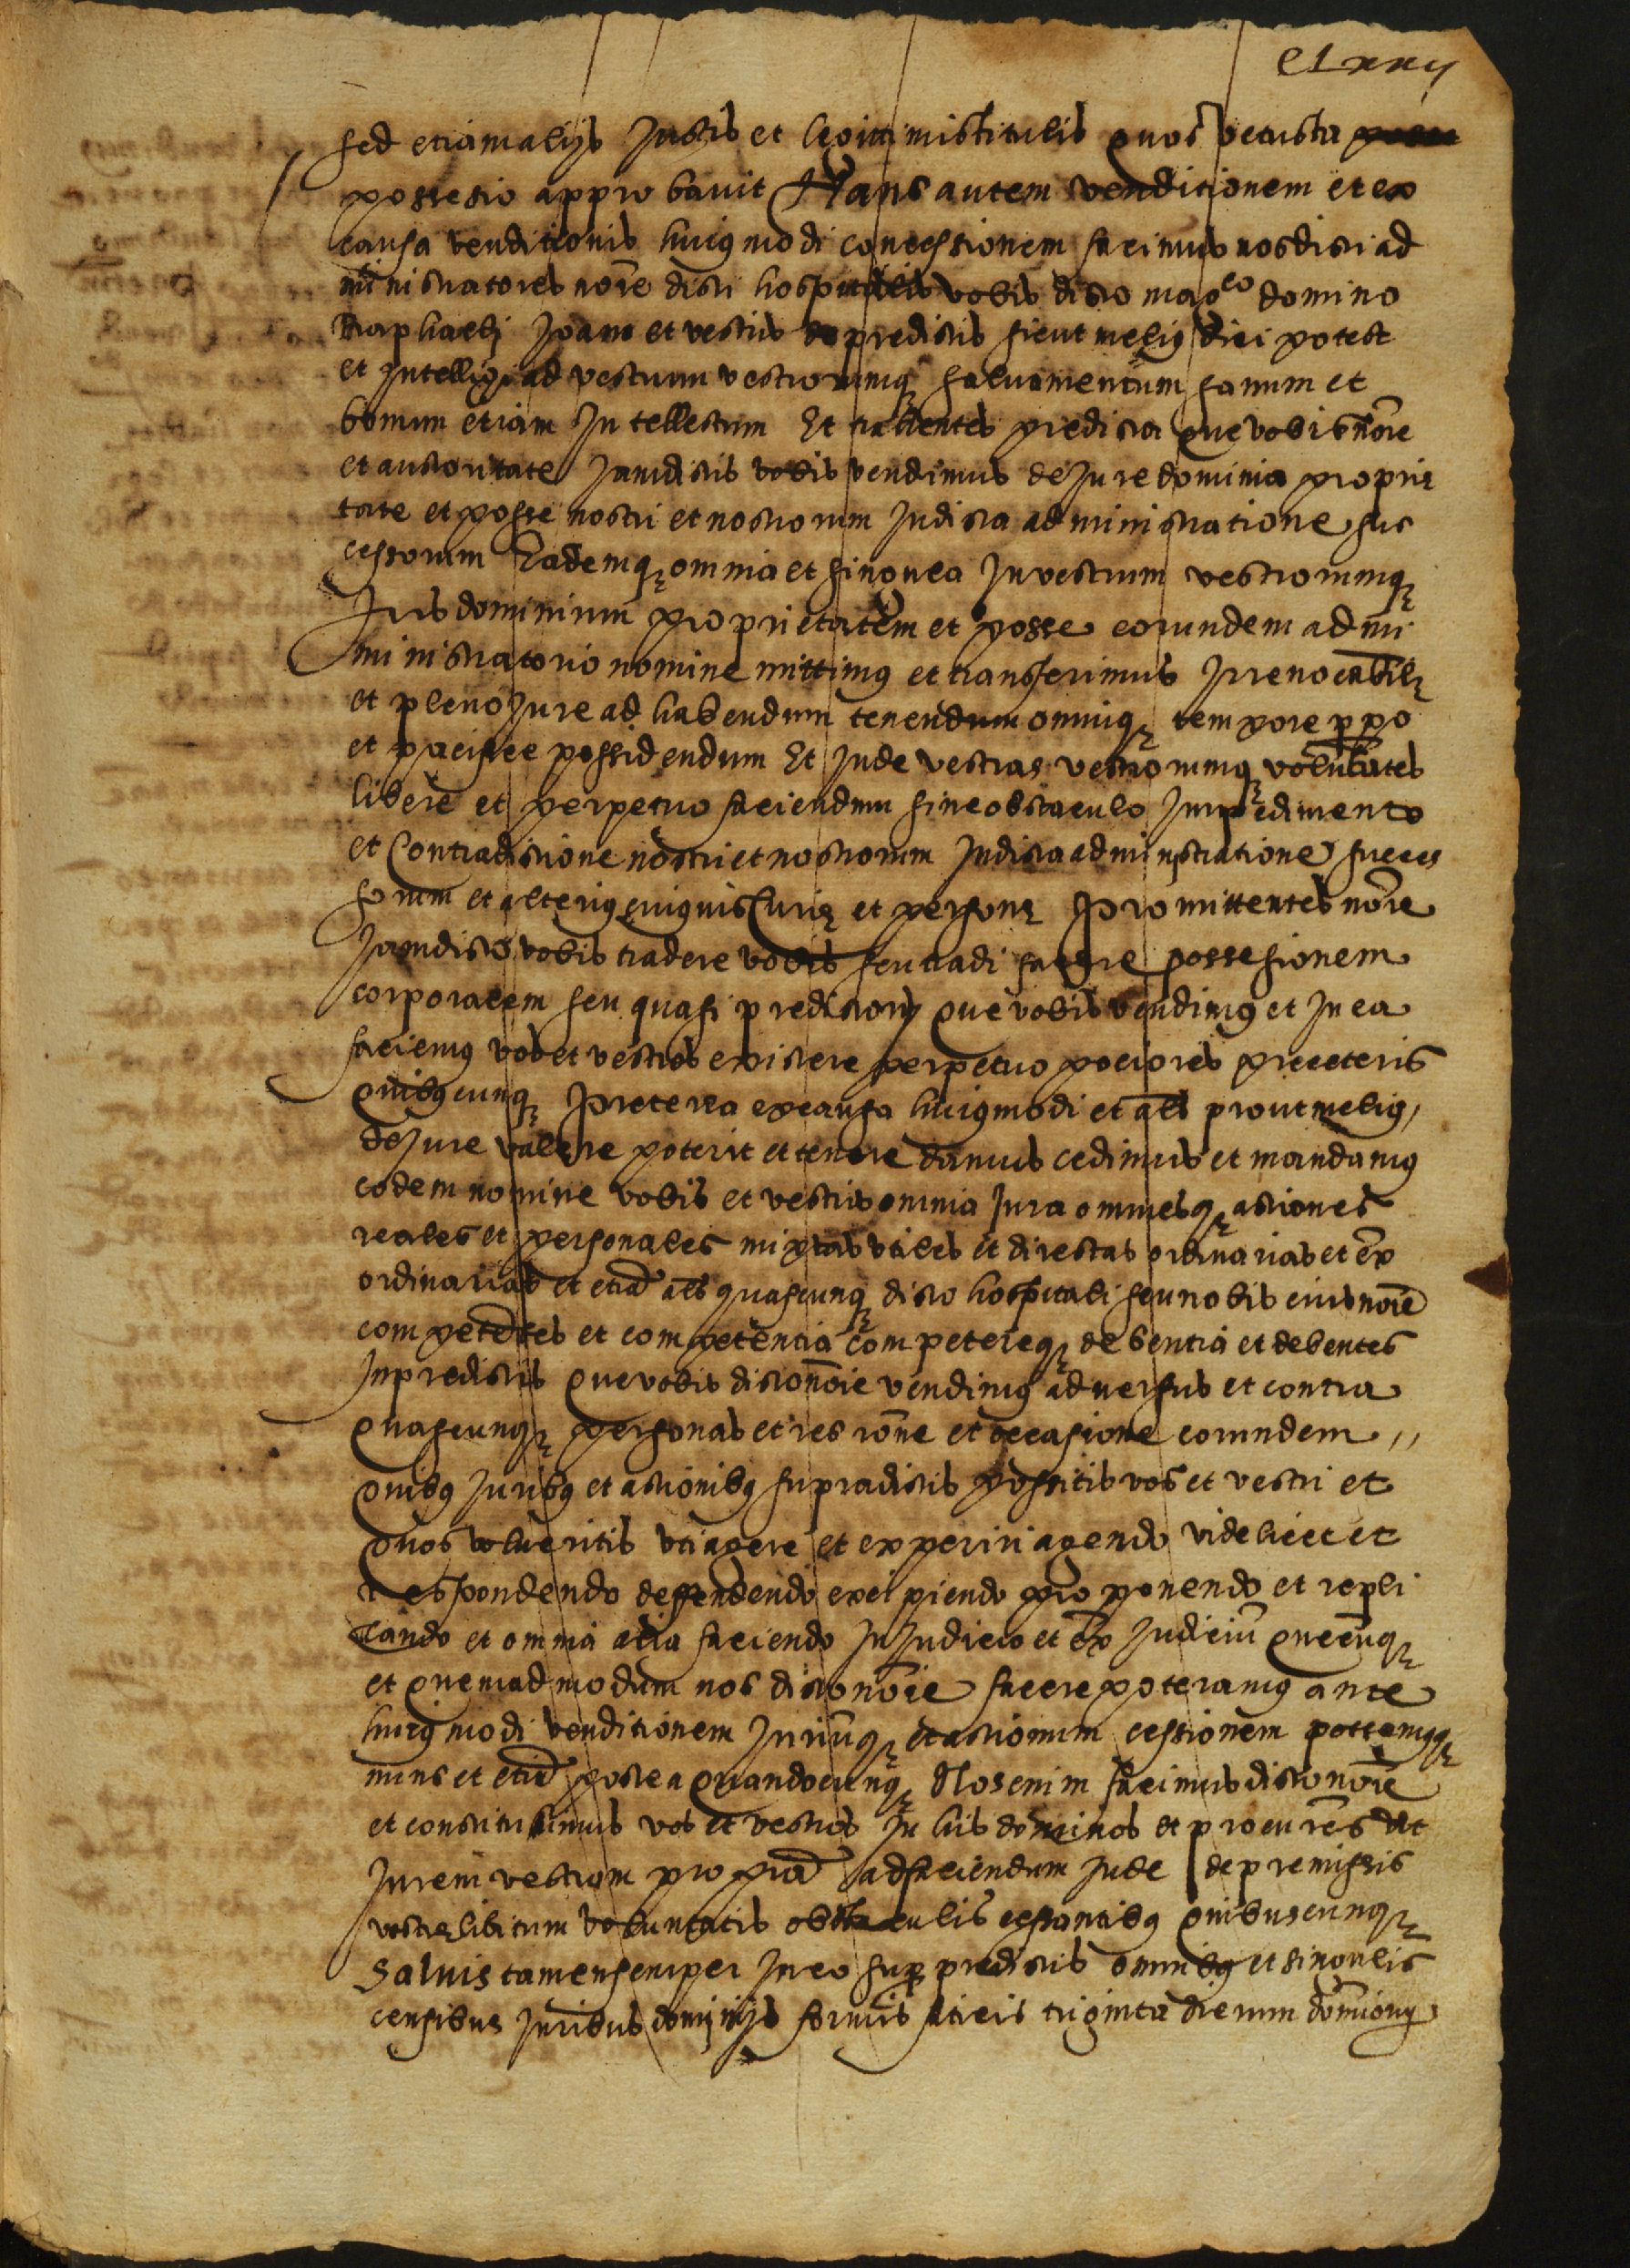 clxxij
sed etiam alijs Justis et legittimis titulis quos vetusta
possesio approbavit Hanc autem venditionem et ex
causa venditionis huiusmodi concessionem facimus nos dicti ad
ministratores noīe dicti hospitalis vobis dicto mag.co domino
Raphaeli Joanni et vestris de predictis sicut melius dici potest
et Intelligi ad vestrum vestrorumque salvamentum sanum et
bonum etiam Intellectum Et trahentes predicta que vobis noīe
et auctoritate Jamdictis vobis vendimus de Jure dominio proprie
tate et posse nostri et nostrorum In dicta administratione suc
cessorum Eademque omnia et singula In vestrum vestrorumque
Jus dominium proprietatem et posse eorundem admi
ministratorio nomine mittimus et transferimus Irrevocabilę
et pleno Jure ad habendum tenendum omnique tempore ppo
et pacifice possidendum Et Inde vestras vestrorumque volūtates
libere et perpetuo faciendum sine obstaculo Impedimento
et Contradictione nostri et nostrorum In dicta administratione succes
sorum et alterius cuiusvis Curię et personę Promittentes noīe
Jamdicto vobis tradere vobis seu tradi facere possesionem
corporalem seu quasi predictorum que vobis vendimus et In ea
faciemus vos et vestros existere perpetuo pociores pre ceteris
quibuscunque Preterea ex causa huiusmodi et als prout melius
de Jure valere poterit et tenere damus cedimus et mandamus
eodem nomine vobis et vestris omnia Jura omnesque actiones
reales et personales mixtas utiles et directas ordinarias et ex
ordinarias et etiā als quascunque dicto hospitali seu nobis eius noīe
competētes et competentia competereque debentia et debentes
In predictis que vobis dicto noīe vendimus adversus et contra
quascunque personas et res rōne et occasione eorundem
quibus Juribus et actionibus supradictis possitis vos et vestri et
quos volueritis uti agere et experiri agendo videlicet et
respondendo deffendendo excipiendo proponendo et repli
cando et omnia alia faciendo In Judicio et ex Judiciū quecūque
et quemadmodum nos dicto noīe facere poteramus ante
huiusmodi venditionem Juriūque et actionum cessionem possemusque
nunc et etiā postea quandocunque Nos enim facimus dicto noīe
et constituimus vos et vestros In his dominos et procures ut
In rem vestram propriā ad faciendum Inde de premissis
vestrę libitum voluntatis obstaculis cessantibus quibuscunque
Salvis tamen semper In eo super predictis omnibus et singulis
censibus Juribus dominijs firmis faticis triginta dierum dominorum